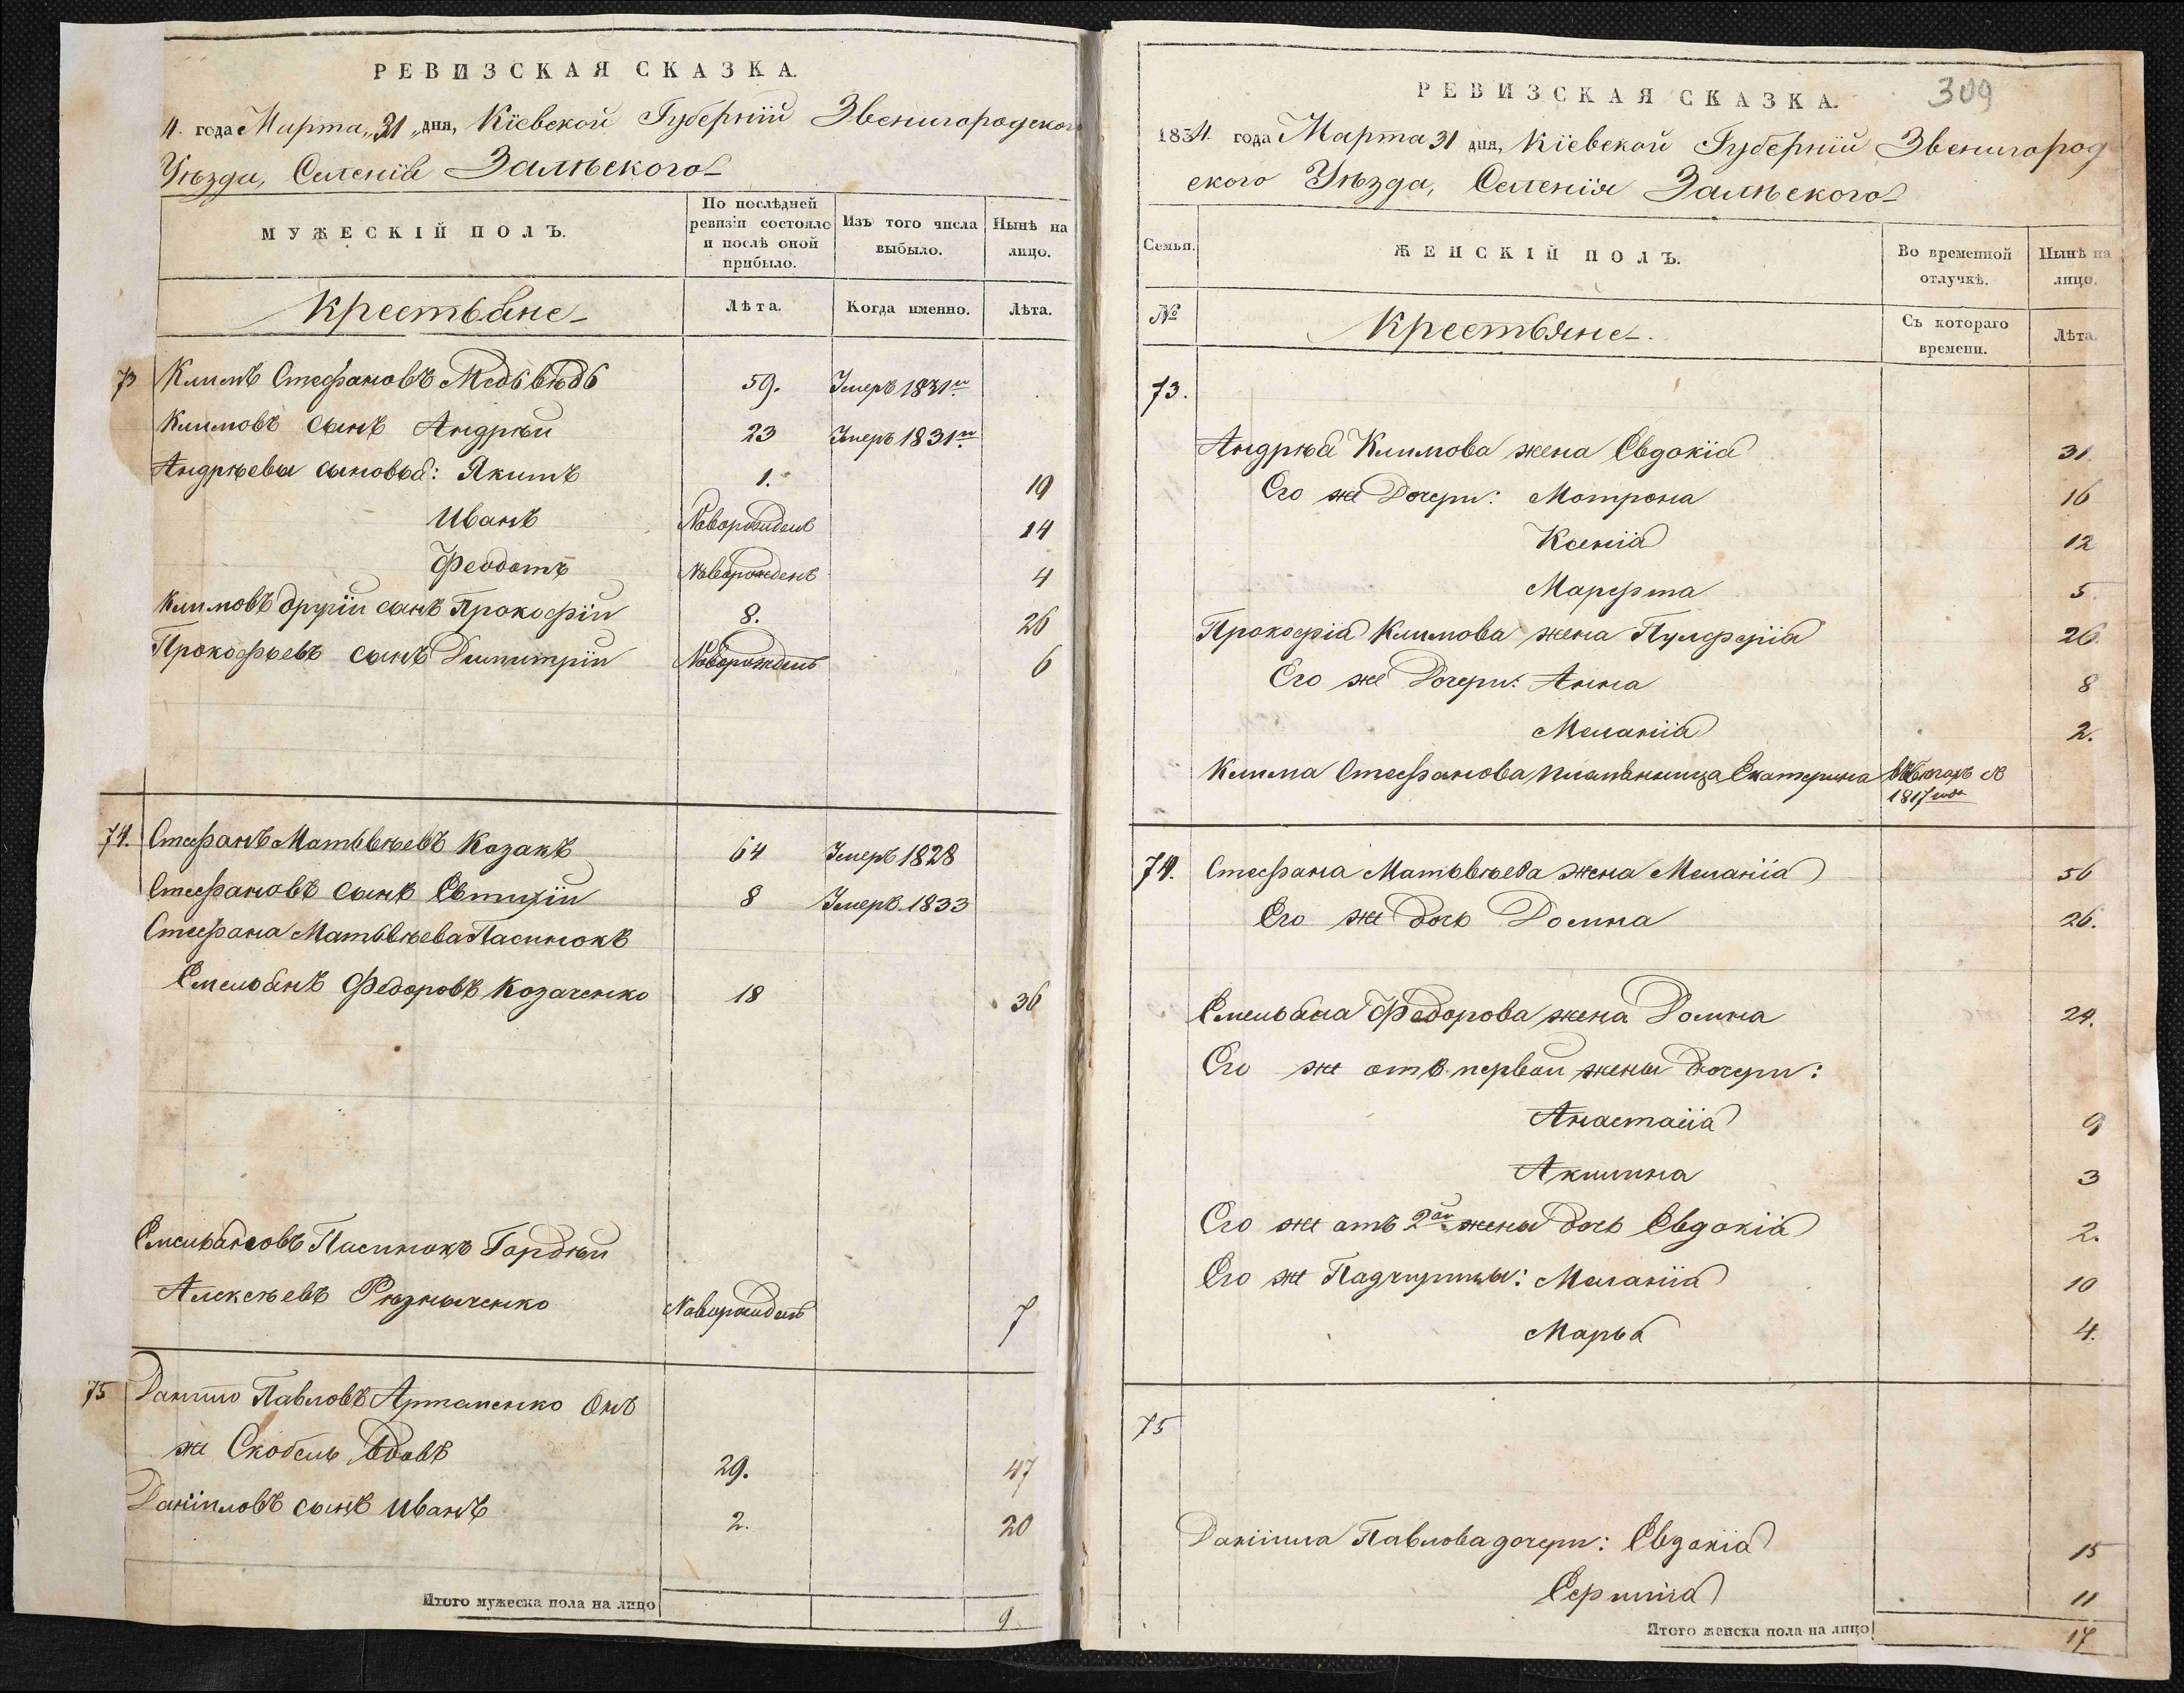 РЕВИЗСКАЯ СКАЗКА.
4. года Марта „31„ дня, Кіевской Губерніи Звенигородского
Уѣзда, Селенія Залѣского
МУЖЕСКІЙ ПОЛЪ.
По послѣдней ревизіи состояло и послѣ оной прибыло.
Изъ того числа выбыло.
Нынѣ на лицо.
Крестьяне
Лѣта.
Когда именно.
Лѣта.
73 Климъ Стефановъ Медьвѣдь 59. Умеръ 1831го
Климовъ сынъ Андрѣй 23 Умеръ 1831го
Андрѣевы сыновья: Якимъ 1. 19
Иванъ Новорожденъ 14
Феодотъ Новорожденъ 4
Климовъ другій сынъ Прокофій 8. 26
Прокофьевъ сынъ Димитрій Новорожденъ 6
74. Стефанъ Матьвѣевъ Козакъ 64 Умеръ 1828
Стефановъ сынъ Евтихій 8 Умеръ 1833
Стефана Матьвѣева Пасинокъ
Емельянъ Федоровъ Козаченко 18 36
Емельяновъ Пасинокъ Гордѣй
Алексѣевъ Рѣзныченко Новорожденъ 7
75 Данило Павловъ Артапенко Онъ
же Скобель вдовъ 29. 47
Даніиловъ сынъ Иванъ 2. 20
Итого мужеска пола на лицо 9
309
РЕВИЗСКАЯ СКАЗКА.
1834. года Марта 31 дня, Кіевской Губерніи Звенигород
ского Уѣзда, Селенія Залѣского
Семьи.
ЖЕНСКІЙ ПОЛЪ.
Во временной отлучкѣ.
Нынѣ на лицо.
№
Крестьяне.
Съ котораго времени.
Лѣта.
73.
Андрѣя Климова жена Евдокія 31.
Его же Дочери: Мотрона 16
Ксенія 12
Марфта 5.
Прокофія Климова жена Пулхерія 26.
Его же Дочери: Анна 8
Меланія 2.
Клима Стефанова племянница Екатерина въ бѣгахъ съ
1817 года
74. Стефана Матьвѣева жена Меланія 56
Его же дочь Домна 26.
Емельяна Федорова жена Домна 24.
Его же отъ первой жены дочери:
Анастасія 9
Акилина 3
Его же отъ 2ой жены дочь Евдокія 2.
Его же Падчирицы: Меланія 10
Марья 4.
75
Даніила Павлова дочери: Евдокія 15
11
Итого женска пола на лицо 17